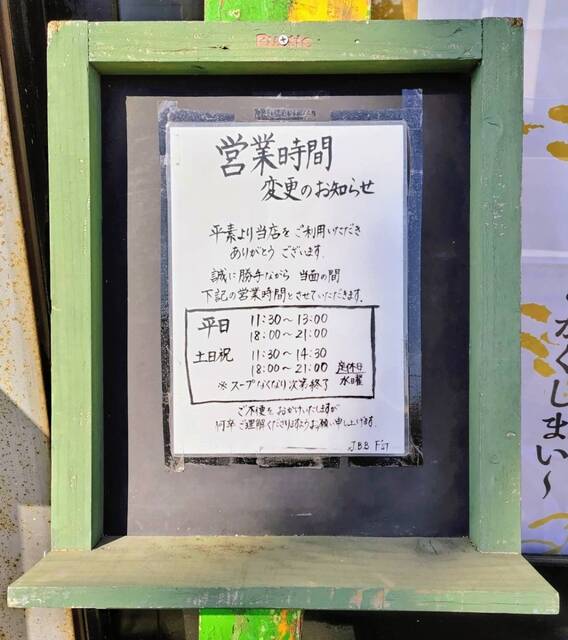 営業時間
変更のお知らせ
平素より当店をご利用いただき
ありがとうございます.
誠に勝手ながら 当面の間
下記の営業時間とさせていただきます.
平日 11:30～13:00
18:00～21:00
土日祝 11:30～14:30
18:00～21:00
定休日
水曜
※スープなくなり次第終了
ご不便をおかけいたしますが
何卒ご理解くださりますようお願い申し上げます.
かくしまい～